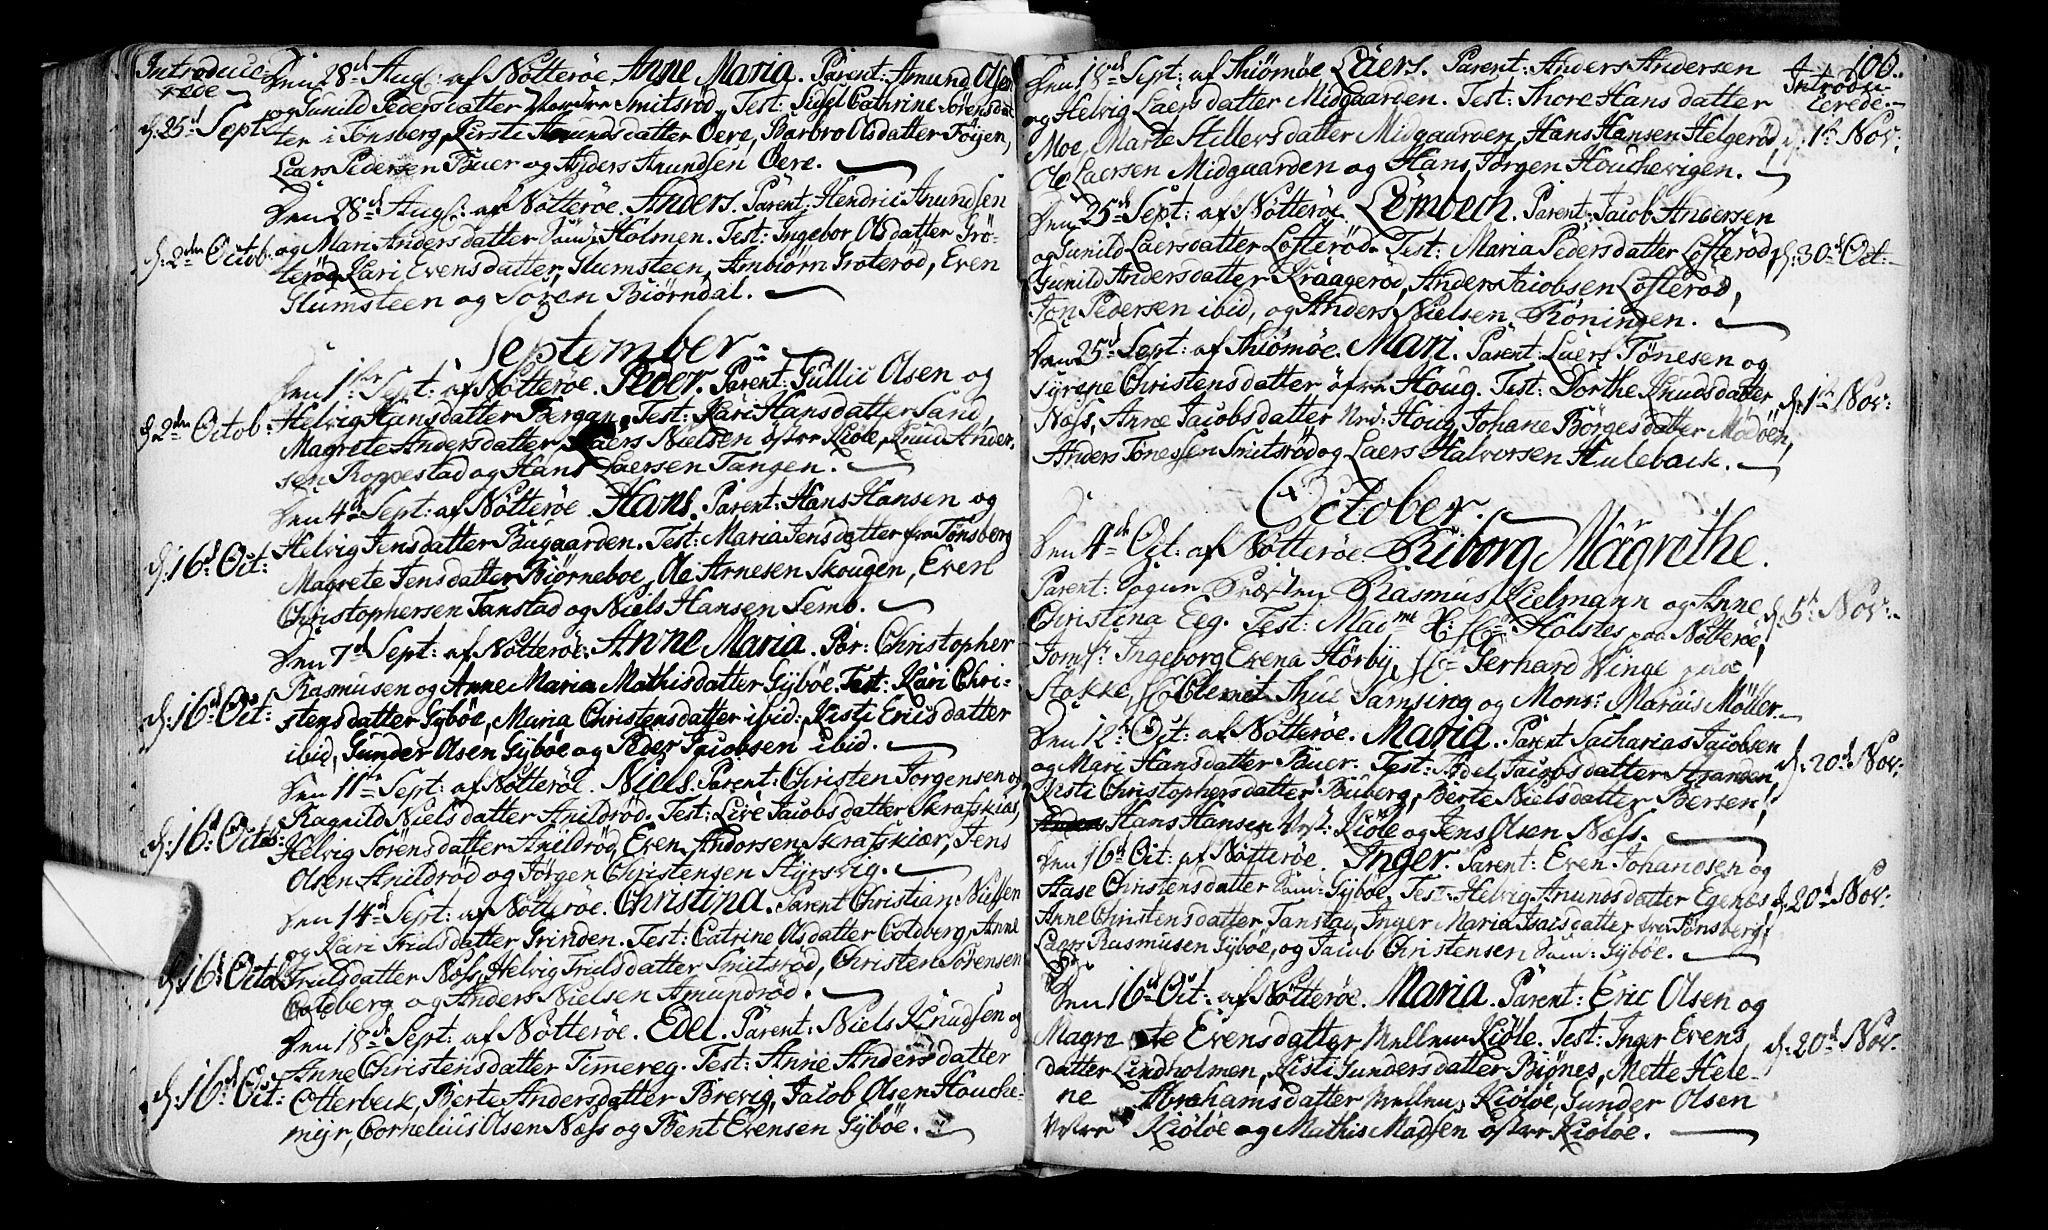 Introduce
rede
Den 28de Aug: af Nötteröe. Anne Maria. Parent: Amund Olsen
og Gunild Pedersdatter Smitsröd. Test: Sidsel Cathrine Sörensdat
d: 25d Sept:
ter i Tönsberg, Kirsti Amundsdatter Öere, Barbro Olsdatter Föyen,
Laers Pedersen Buer og Anders Amundsen Öere.
Den 28de Aug: af Nötteröe. Anders. Parent: Hendric Amundsen
og Mari Andersdatter Sund: Holmen. Test: Ingebor Olsdatter Grö-
d: 2den Octob.
teröd, Kari Evensdatter, Glumsteen, Ambiörn Groteröd, Even
Glumsteen og Sören Biörndal.
September
Den 1ste Sept: af Nötteröe. Peder. Parent: Tullic Olsen og
d: 2den Octob:
Helvig Hansdatter Bergan. Test: Kari Hansdatter Sand,
Magrete Andersdatter, Laers Nielsen östre Kiöle, Knud Ander-
sen Roppestad og Hans Laersen Tangen.
Den 4de Sept: af Nötteröe. Hans. Parent: Hans Hansen og
Helvig Jensdatter Bugaarden. Test: Maria Jensdatter fra Tönsberg
d: 16d Oct:
Magrete Jensdatter Biörneboe, Ole Arnesen Skougen, Even
Christophersen Tanstad og Niels Hansen Semb.
Den 7de Sept: af Nötteröe. Anne Maria. Par: Christopher
Rasmusen og Anne Maria Mathisdatter Gyböe. Test: Kari Chri-
d: 16d Oct:
stensdatter Gyböe, Maria Christensdatter ibid: Kisti Ericsdatter
ibid, Gunder Olsen Gyböe og Peder Jacobsen ibid.
Den 11te Sept: af Nötteröe. Niels. Parent: Christen Jörgensen og
Ragnild Nielsdatter Anildröd. Test: Live Jacobsdatter Skrafskiær,
d: 16d Octob:
Helvig Sörensdatter Anildröd, Even Andersen Skrafskiær, Jens
Olsen Anildröd og Jörgen Christensen Styrsvig.
Den 14de Sept: af Nötteröe. Christina. Parent Christian Nielsen
og Kari Trulsdatter Grinden. Test: Catrine Olsdatter Coldberg, Anne
d: 16d Octob
Trulsdatter Næss, Helvig Trulsdatter Smitsröd, Christen Sörensen
Coldberg og Anders Nielsen Amundröd.
Den 18de Sept: af Nötteröe. Edel. Parent: Niels Knudsen og
Anne Christensdatter Timereg. Test: Anne Andersdatter
d: 16d Oct:
Otterbeck, Berte Andersdatter Brevig, Jacob Olsen Houche-
mejr, Cornelius Olsen Næss og Bent Evensen Gyböe.
106.
Introdu-
cerede
Den 18de Sept: af Thiömöe Laers. Parent: Anders Andersen
og Helvig Laersdatter Midgaarden. Test: Thore Hansdatter
Moe, Marte Hillersdatter Midgaarden, Hans Hansen Helgeröd,
d: 1ste Nov:
Ole Laersen Midgaarden og Hans Jörgen Houchevigen.
Den 25de Sept: af Nötteröe. Lembech. Parent: Jacob Andersen
og Gunild Laersdatter Lofteröd. Test: Maria Pedersdatter Lofteröd,
d: 30d Oct:
Gunild Andersdatter Kraageröd, Anders Jacobsen Lofteröd,
Jon Pedersen ibid, og Anders Nielsen Röningen.
Den 25de Sept: af Thiömöe. Mari. Parent: Laers Tönesen og
Syrene Christensdatter öfre Houg. Test: Dorthe Knudsdatter
d: 1ste Nov:
Næss, Anne Jacobsdatter Nrd: Houg, Johane Börgesdatter Mödöen,
Anders Tönessen Smitsröd og Laers Halvorsen Huleback.
October.
Den 4de Oct: af Nötteröe Riborg Magrethe.
Parent: Sogne Præsten Rasmus Kielmann og Anne
d: 5te Nov:
Christina Eeg. Test: Madme Holstes paa Nötteröe,
Jomfr: Ingeborg Evena Hörby, Gerhard Winge paa
Stokke, Clemet Thue Samsing og Monsr Marcus Möller.
Den 12te Oct: af Nötteröe. Maria. Parent Sacharias Jacobsen
og Mari Hansdatter Buer. Test: Adel Jacobsdatter Stranden,
d: 20d Nov:
Kisti Christophersdatter Buberg, Berte Nielsdatter Bersen,
Hans Hansen Vest: Kiöle og Jens Olsen Næss.
Den 16de Oct: af Nötteröe. Inger. Parent: Even Johanesen og
Aase Christensdatter Sund: Gyböe. Test: Helvig Amundsdatter Egenes,
d: 20d Nov:
Anne Christensdatter Tanstad, Inger Maria Isaisdatter fra Tönsberg,
Laers Rasmusen Gyböe, og Jacob Christensen Sund: Gyböe.
Den 16de Oct: af Nötteröe. Maria. Parent: Eric Olsen og
Magrete Evensdatter Mellem Kiöle. Test: Inger Evens
d: 20d Nov.
datter Lindholmen, Kisti Gundersdatter Biönes, Mette Hele-
ne Abrahamsdatter Mellem Kiölöe, Gunder Olsen
Vestre Kiölöe og Mathis Madsen östre Kiölöe.